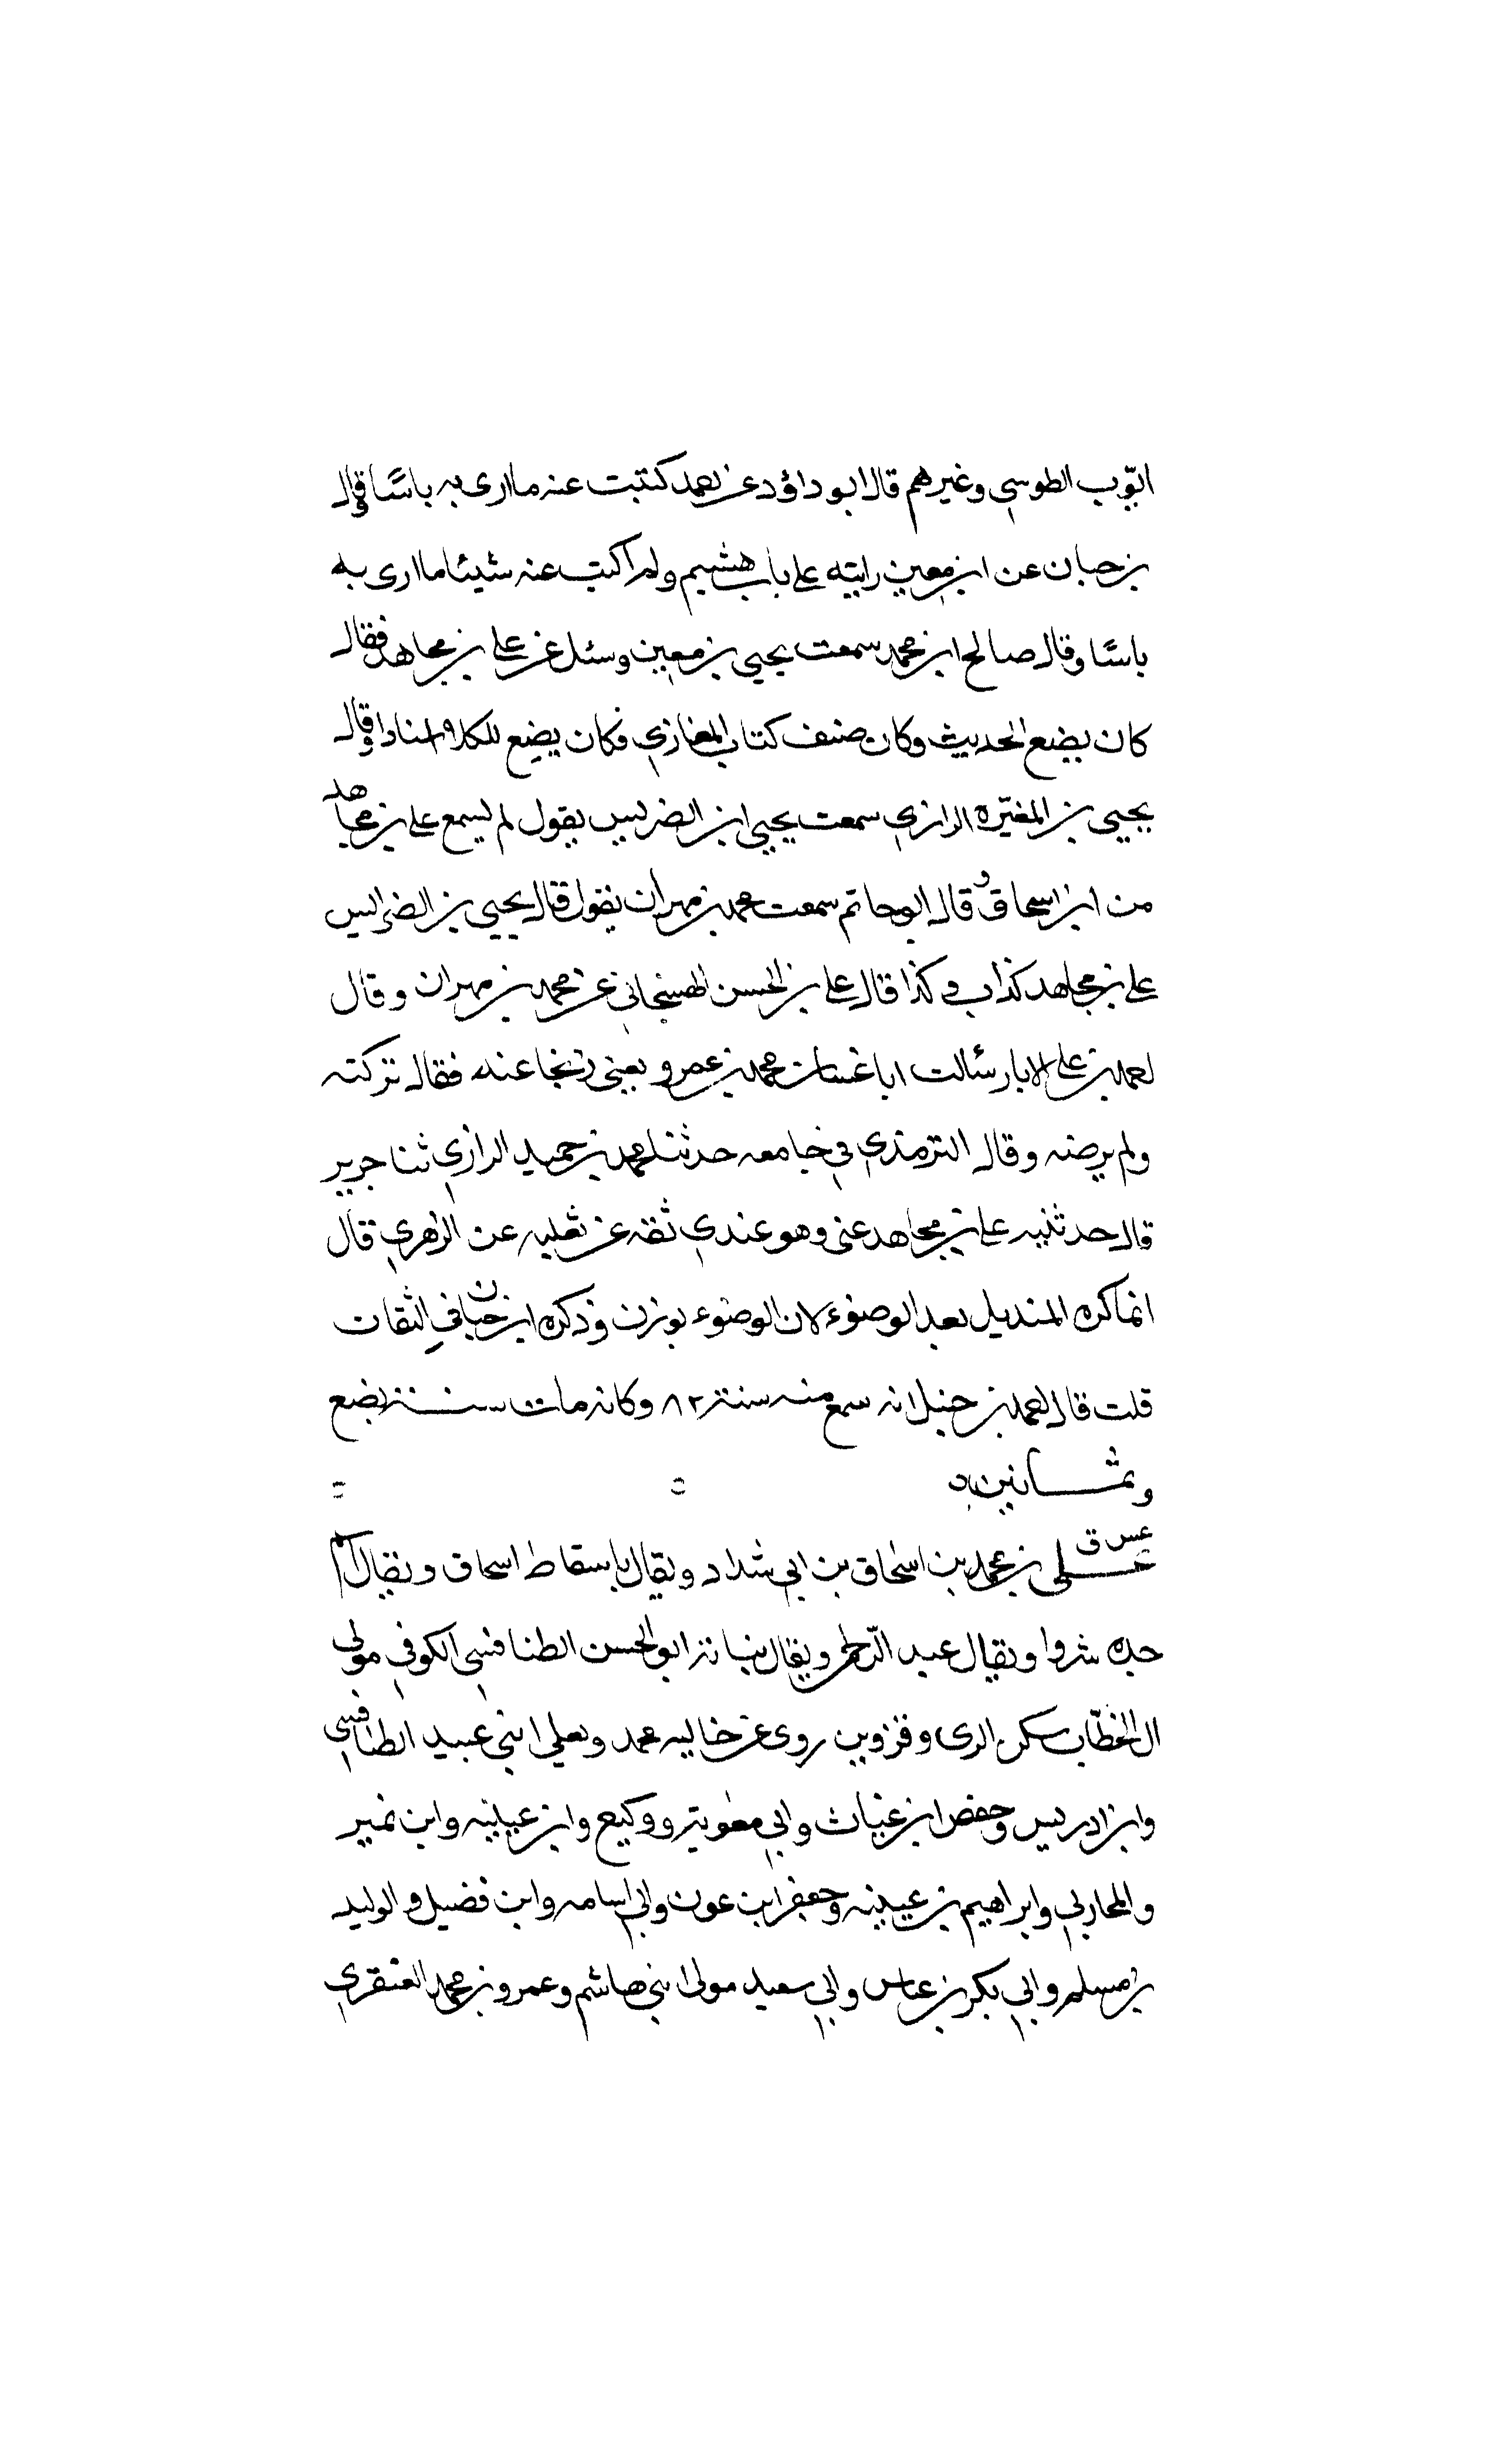 ايّوب الطوسي وغيرهم قال ابو داؤد عن احمد كتبت عنه ما ارى به باسًا وقال
بن حبان عن ابن معين رايته على باب هشيم ولم اكتب عنه شيئا ما ارى به
باسًا وقال صالح ابن محمد سمعت يحيي بن معين وسئل عن علي بن مجاهد فقال
كان يضع الحديث وكان صنف كتاب المغازي فكان يضع للكلام اسنادا وقال
يحيي بن المغيّره الرازي سمعت يحيي ابن الضريس يقول لم يسمع علي بن مجاهد
من ابن اسحاق وقال ابو حاتم سمعت محمد بن مهران يقول قال يحيي بن الضرايس
علي بن مجاهد كذاب وكذا قال علي بن الحسن الهسنجاني عن محمد بن مهران وقال
احمد بن علي الابار سئالت ابا غسان محمد بن عمرو يعني زنيجا عنه فقال تركته
ولم يرضه وقال الترمذي في جامعه حدثنا محمد بن حميد الرازي ثنا جرير
قال حدثنيه علي بن مجاهد عني وهو عندي ثقه عن ثعلبه عن الزهري قال
انما كره المنديل بعد الوضوء لان الوضوء يوزن وذكره ابن حبان في الثقات
قلت قال احمد بن حنبل انه سمع منه سنة ٨٢ وكانه مات سنة بضع
وثمانين
عس ق
علي بن محمد بن اسحاق بن ابي شداد ويقال باسقاط اسحاق ويقال اسم
جده شروا ويقال عبد الرحمن ويقال نباتة ابو الحسن الطنافسي الكوفي مولى
ال الخطّاب سكن الرى وقزوين روى عن خاليه محمد ويعلي ابني عبيد الطنافسي
وابن ادريس وحفص ابن غياث وابي معٰوية ووكيع وابن عيينه وابن نمير
والمحاربي وابراهيم بن عيينه وجعفر ابن عون وابي اسامه وابن فضيل والوليد
بن مسلم وابي بكر بن عياس وابي سعيد مولى بني هاشم وعمرو بن محمد العنقري